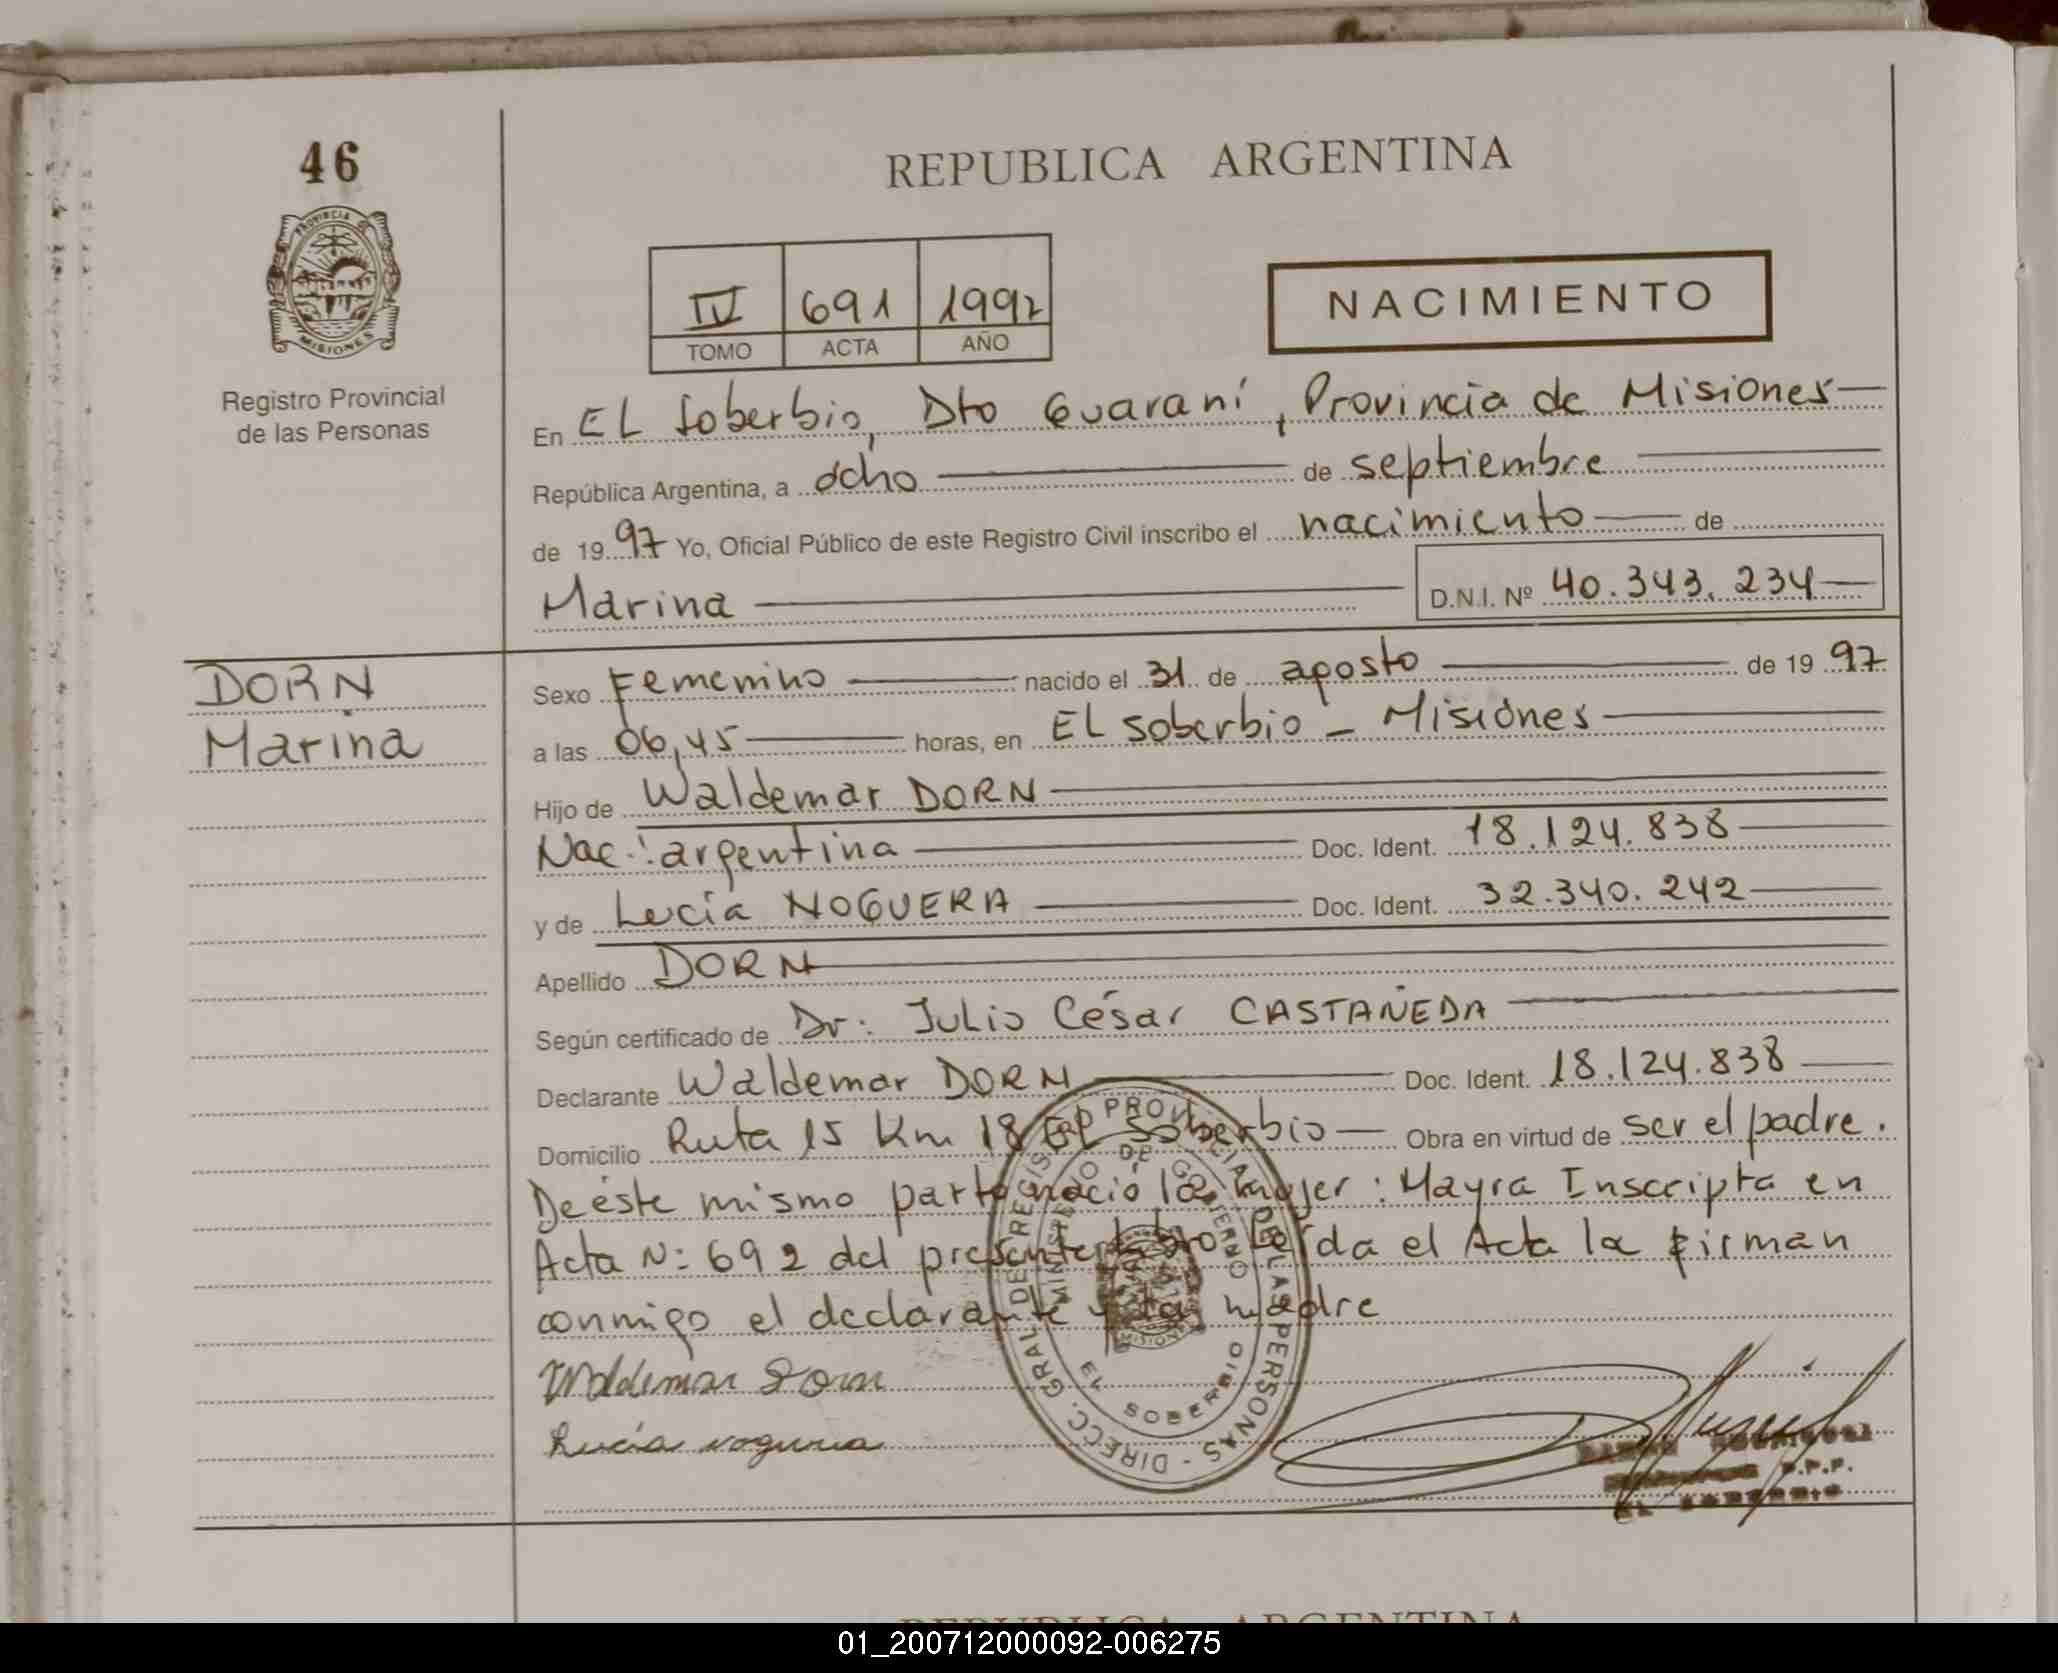 46
REPUBLICA ARGENTINA
PROVINCIA
MISIONES
Registro Provincial
de las Personas
IV 691 1997
TOMO ACTA AÑO
NACIMIENTO
En EL Soberbio, Dto Guaraní, Provincia de Misiones
República Argentina, a ocho de septiembre
de 1997 Yo, Oficial Público de este Registro Civil inscribo el nacimiento de
Marina D.N.I. Nº 40.343.234
DORN
Marina
Sexo Femenino nacido el 31 de agosto de 1997
a las 06,45 horas, en EL Soberbio - Misiones
Hijo de Waldemar DORN
Nac.: argentina Doc. Ident. 18.124.838
y de Lucía NOGUERA Doc. Ident. 32.340.242
Apellido DORN
Según certificado de Dr: Julio César CASTAÑEDA
Declarante Waldemar DORN Doc. Ident. 18.124.838
Domicilio Ruta 15 Km 18 EL Soberbio Obra en virtud de ser el padre.
De éste mismo parto nació la mujer: Mayra Inscripta en
Acta N: 692 del presente Libro Leída el Acta la firman
conmigo el declarante y la madre
Waldemar Dorn
Lucia noguera
DIRECC. GRAL DE REGISTRO PROVINCIAL DE LAS PERSONAS -
MINISTERIO DE GOBIERNO
EL SOBERBIO
MISIONES
R.P.P.
EL SOBERBIO
REPUBLICA ARGENTINA
01_200712000092-006275